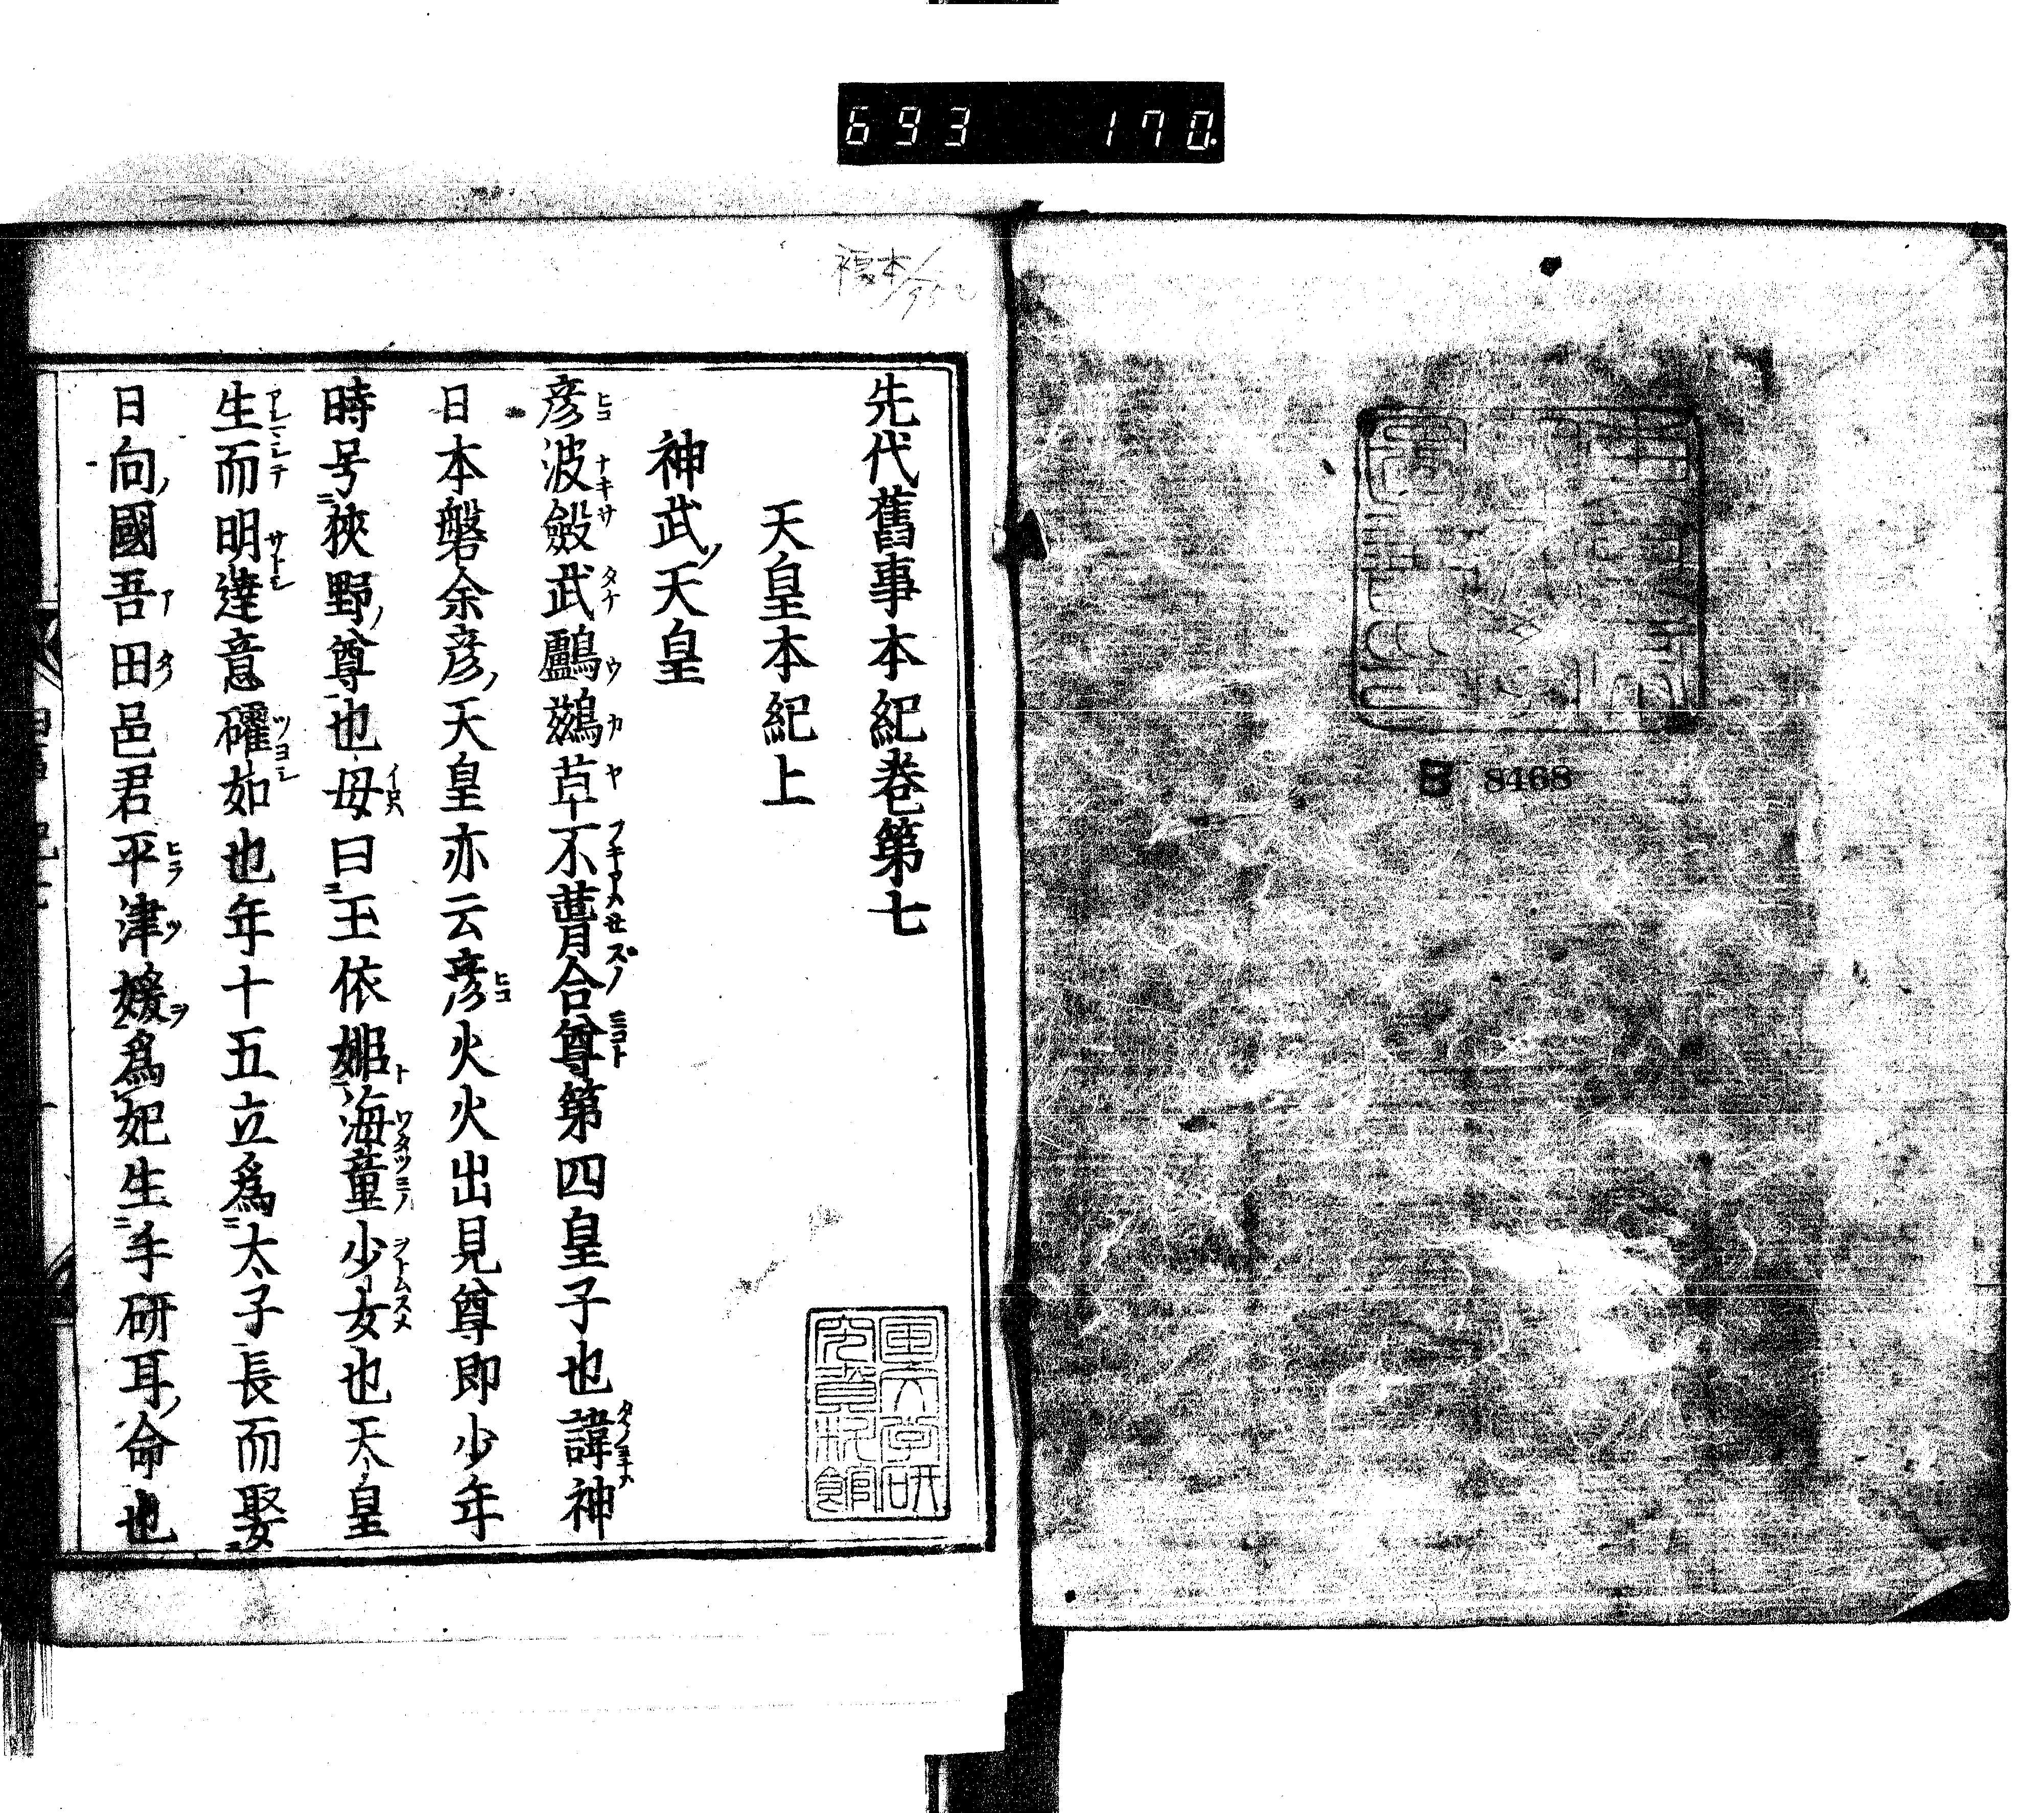 693 170
8468
複本
先代舊事本紀巻第七
天皇本紀上
神武天皇
彦波瀲武鸕鷀草不葺合尊第四皇子也諱神
日本磐余彦天皇亦云彦火火出見尊即少年
時号狹野尊也母曰玉依姬海童少女也天皇
生而明達意礭如也年十五立爲太子長而娶
日向國吾田邑君平津媛爲妃生手研耳命也
国文学研
究資料館